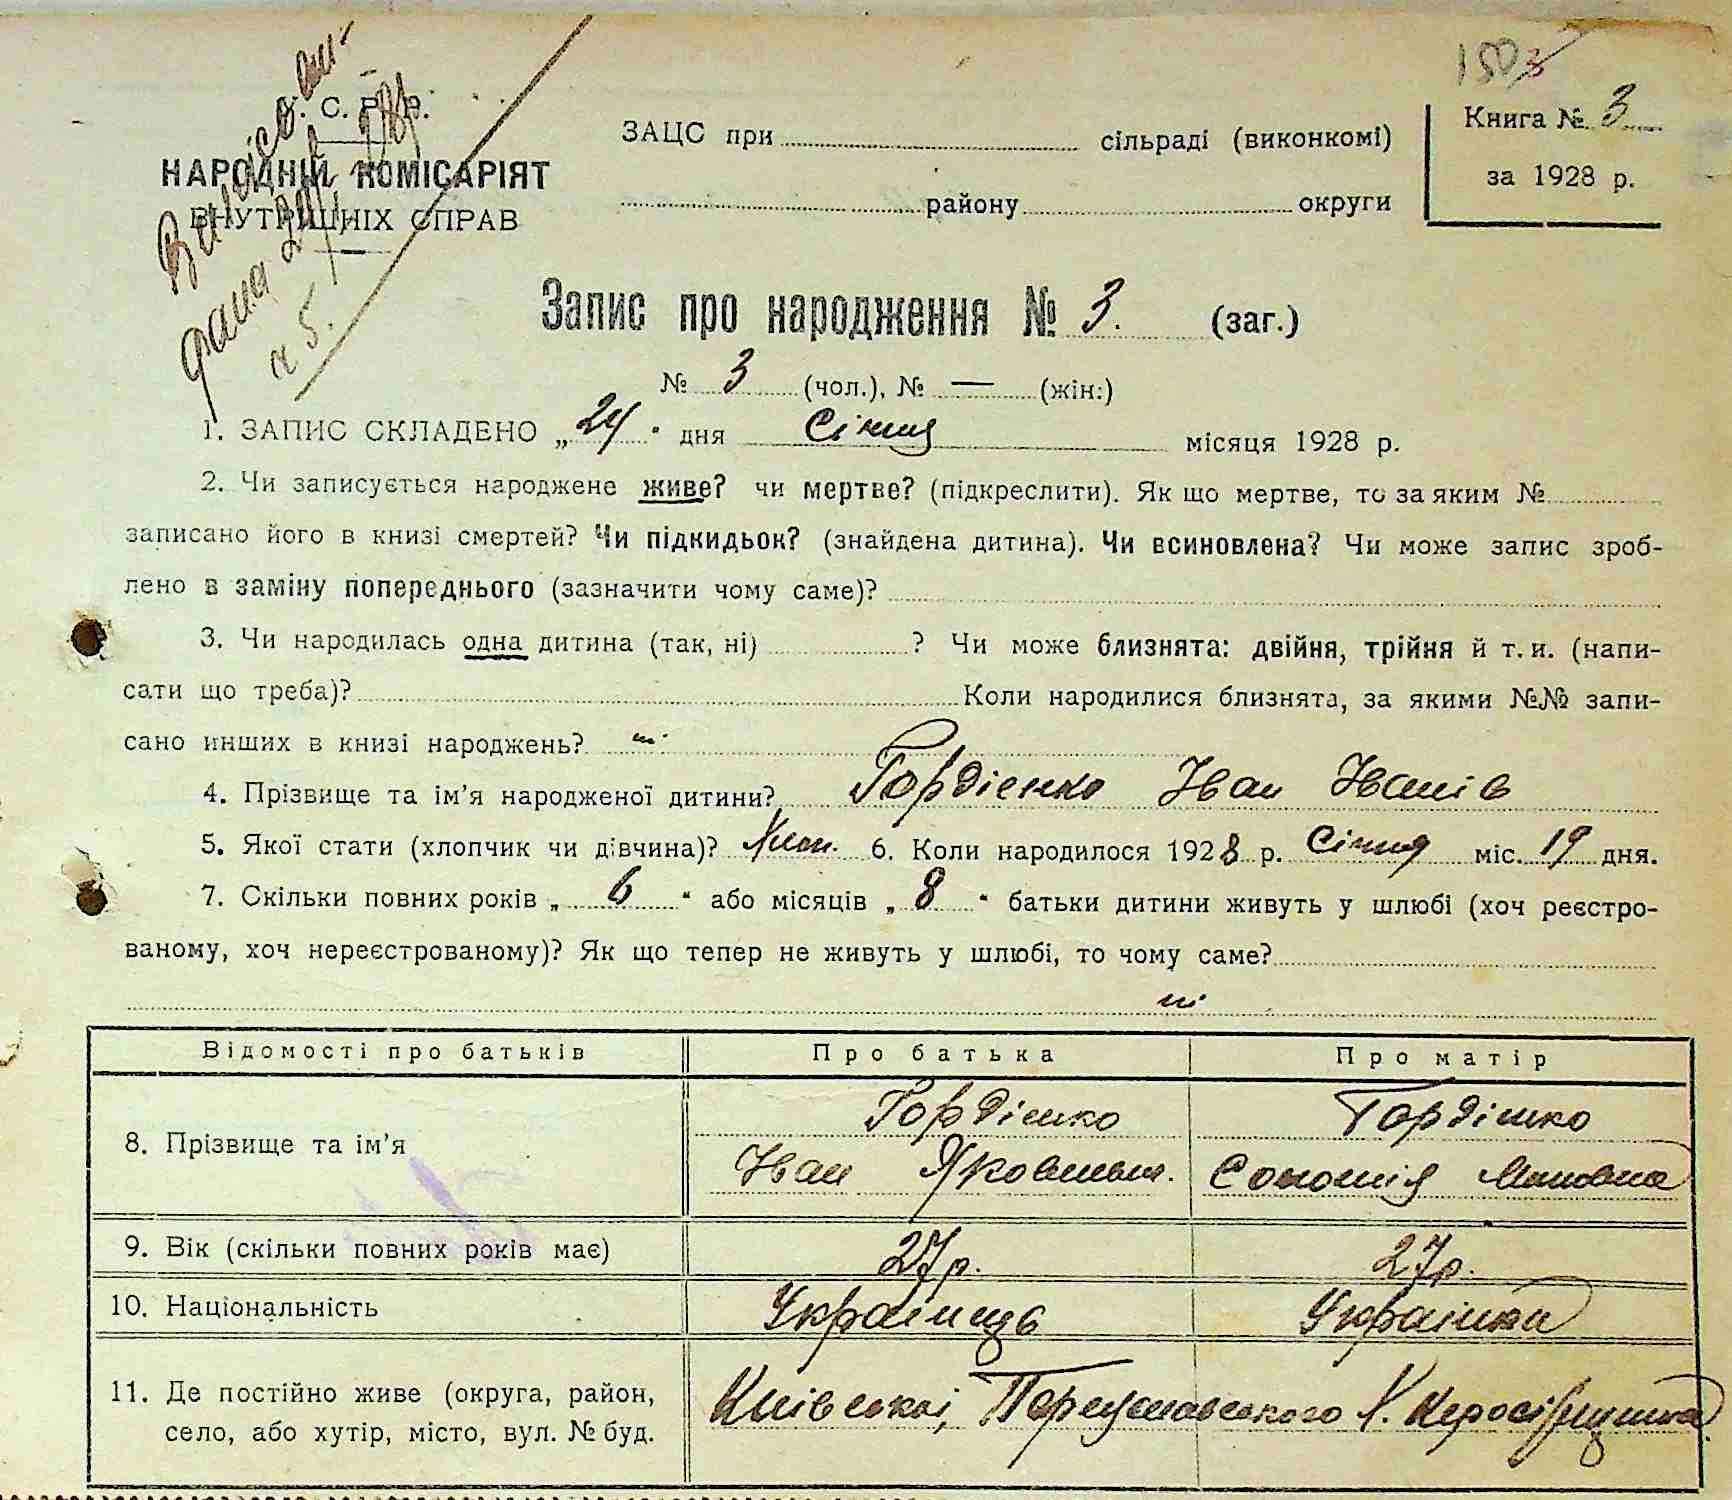 150 3
У. С. Р. Р.
НАРОДНІЙ КОМІСАРІЯТ
ВНУТРІШНІХ СПРАВ
ЗАЦС при сільраді (виконкомі)
району округи
Книга № 3
за 1928 р.
Запис про народження № 3. (заг.)
№ 3 (чол.), № — (жін.)
1. ЗАПИС СКЛАДЕНО „24" дня Січня місяця 1928 р.
2. Чи записується народжене живе? чи мертве? (підкреслити). Як що мертве, то за яким №
записано його в книзі смертей? Чи підкидьок? (знайдена дитина). Чи всиновлена? Чи може запис зроб-
лено в заміну попереднього (зазначити чому саме)?
3. Чи народилась одна дитина (так, ні) ? Чи може близнята: двійня, трійня й т. и. (напи-
сати що треба)? Коли народилися близнята, за якими №№ запи-
сано инших в книзі народжень? ні
4. Прізвище та ім'я народженої дитини? Гордієнко Іван Іванів
5. Якої стати (хлопчик чи дівчина)? Хлоп. 6. Коли народилося 1928 р. Січня міс. 19 дня.
7. Скільки повних років „ 6 " або місяців „ 8 " батьки дитини живуть у шлюбі (хоч реєстро-
ваному, хоч нереєстрованому)? Як що тепер не живуть у шлюбі, то чому саме?
ні
Відомості про батьків Про батька Про матір
8. Прізвище та ім'я
Гордієнко Гордієнко
Іван Якович Соломія
9. Вік (скільки повних років має) 27 р. 27 р.
10. Національність Українець Українка
11. Де постійно живе (округа, район,
село, або хутір, місто, вул. № буд.
Київської, Переяславського х.